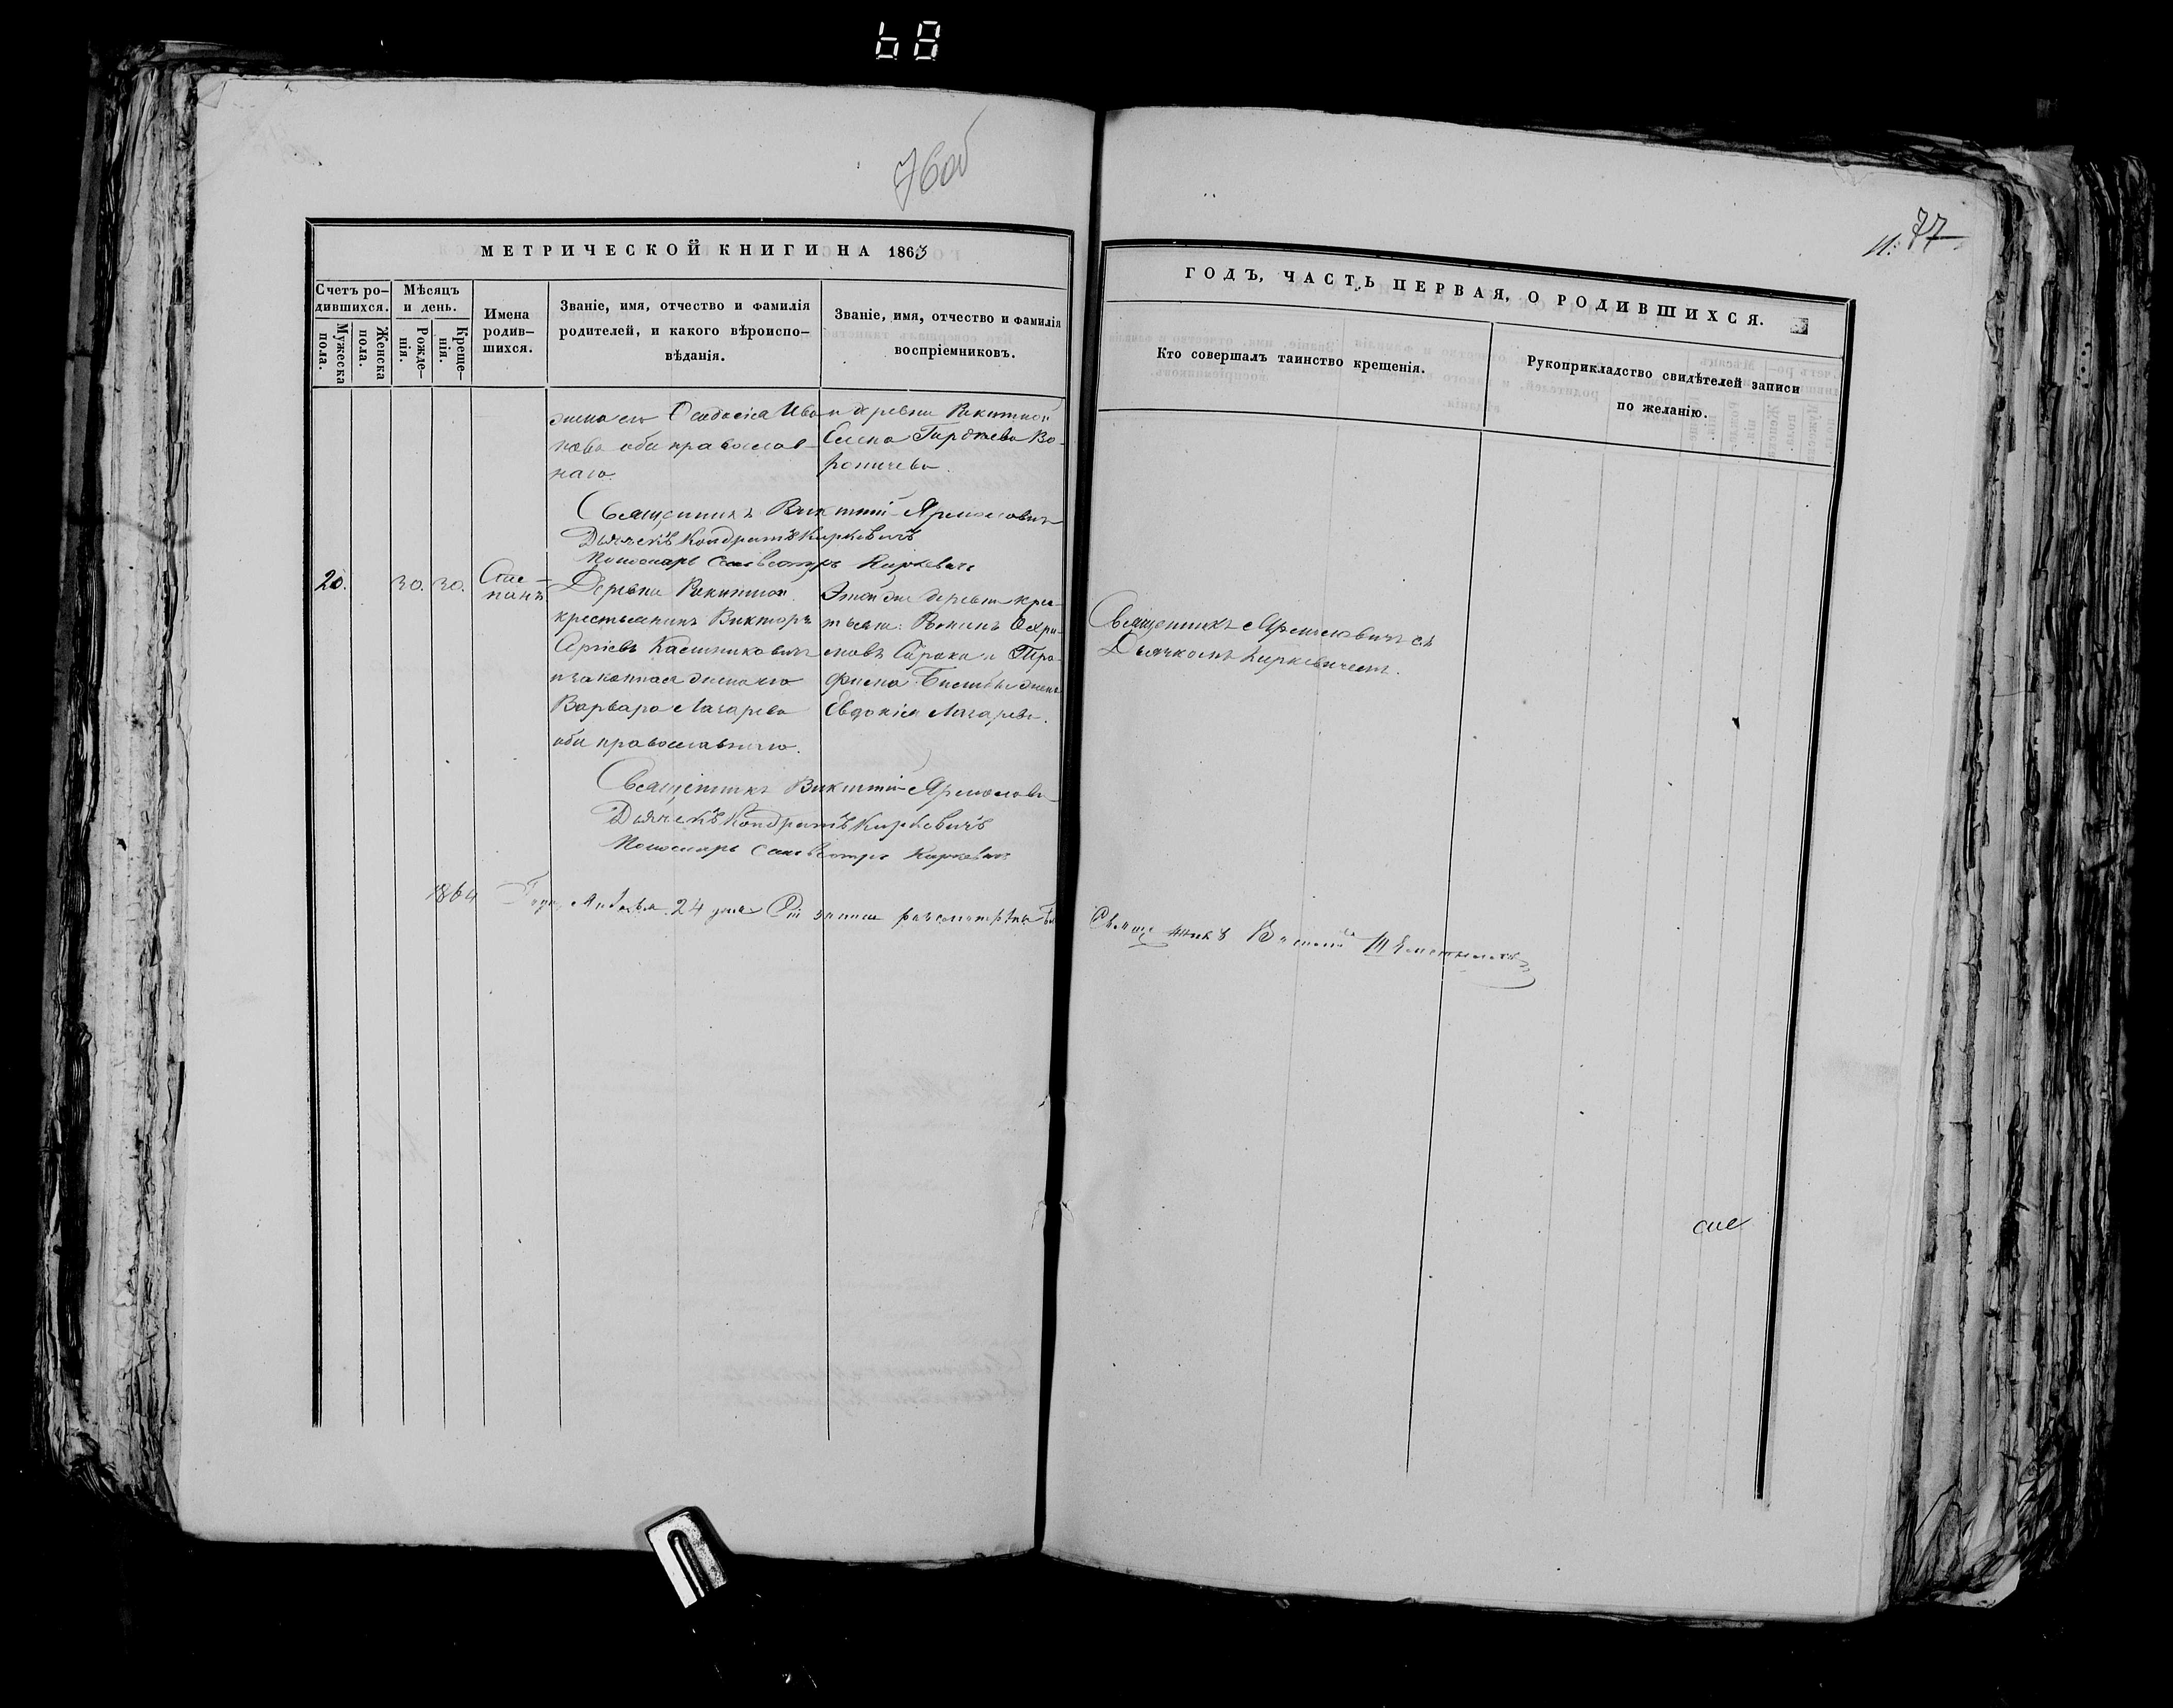 68
76об
МЕТРИЧЕСКОЙ КНИГИ НА 1863
Счетъ ро-
дившихся.
Мѣсяцъ
и день.
Мужеска
пола.
Женска
пола.
Рожде-
нія.
Креще-
нія.
Имена
родив-
шихся.
Званіе, имя, отчество и фамилія
родителей, и какого вѣроиспо-
вѣданія.
Званіе, имя, отчество и фамилія
воспріемниковъ.
жена его Феодосія Ива-
нова оба православ-
наго.
и деревни Рекитной
Елена
Вороничева.
Священникъ Викентій Ярмоловичъ
Дьячекъ Кондратъ Киркевичъ
Пономарь Сильвестръ Киркевичъ
20.
30. 30.
Сте-
панъ
Деревни Рекитной
крестьянинъ Викторъ
Сергіевъ
и законная жена его
Варвара Лазарева
оба православнаго.
Этой же деревни крес-
тьяне: Романъ Охри-
мовъ Сорока и Тро-
фима жена
Евдокія Лазарева.
Священникъ Викентій Ярмолович
Дьячекъ Кондратъ Киркевичъ
Пономарь Сильвестръ Киркевичъ
1864 Года Января 24 дня Сіи записи разсмотрѣны
77
ГОДЪ, ЧАСТЬ ПЕРВАЯ, О РОДИВШИХСЯ.
Кто совершалъ таинство крещенія.
Рукоприкладство свидѣтелей записи
по желанію.
Священникъ Ярмоловичъ съ
Дьячкомъ Киркевичемъ.
Священникъ Василій
сие